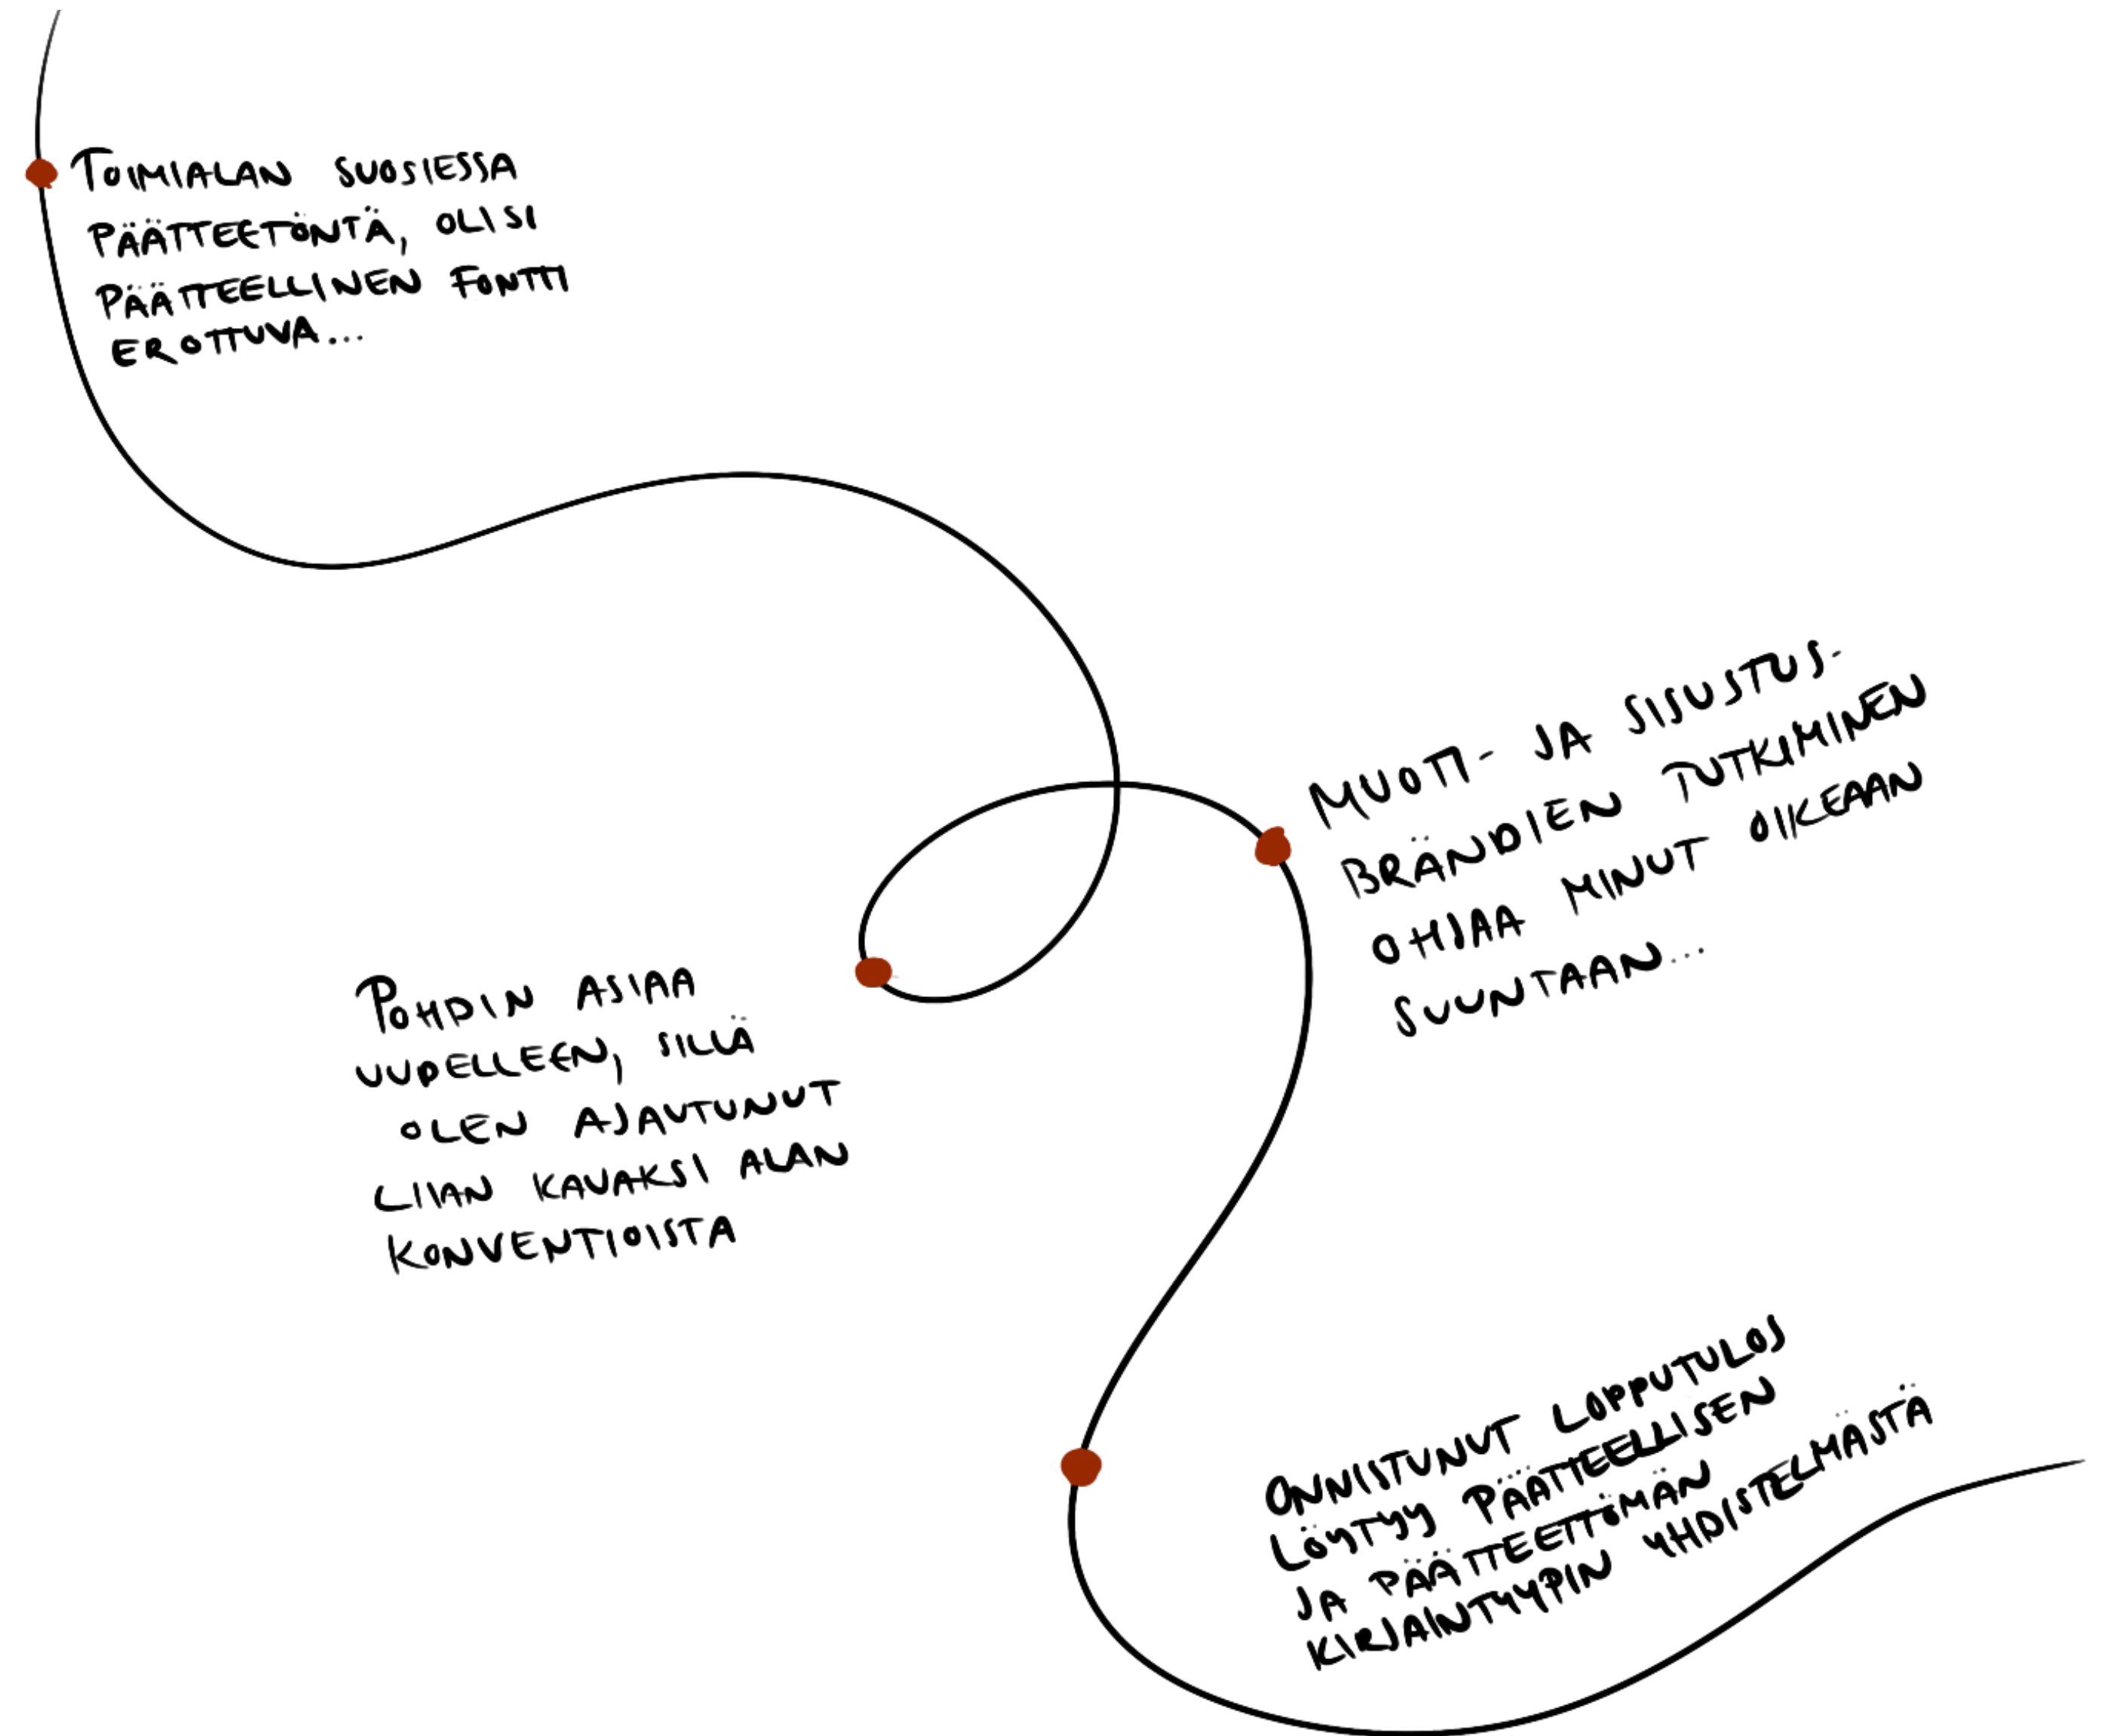 TOIMIALAN SUOSIESSA
PÄÄTTEETÖNTÄ, OLISI
PÄÄTTEELLINEN FONTTI
EROTTUVA...
POHDIN ASIAA
UUDELLEEN, SILLÄ
OLEN AJAUTUNUT
LIIAN KAUAKSI ALAN
KONVENTIOISTA
MUOTI- JA SISUSTUS-
BRÄNDIEN TUTKIMINEN
OHJAA MINUT OIKEAAN
SUUNTAAN...
ONNISTUNUT LOPPUTULOS
LÖYTYY PÄÄTTEELLISEN
JA PÄÄTTEETTÖMÄN
KIRJAINTYYPIN YHDISTELMÄSTÄ